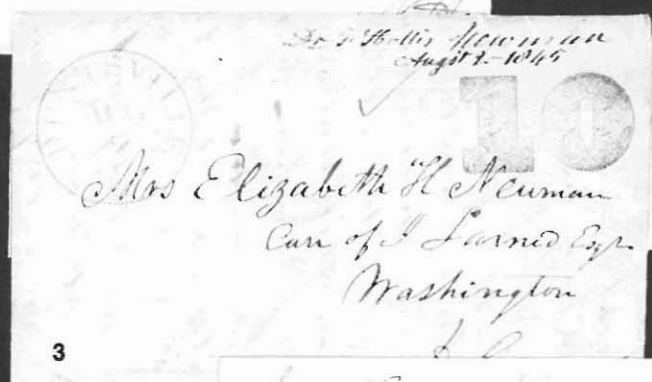 Hollis Newman
August 9 - 1845
10
Mrs Elizabeth H Newman
Care of I Larned Esqr.
Washington
3